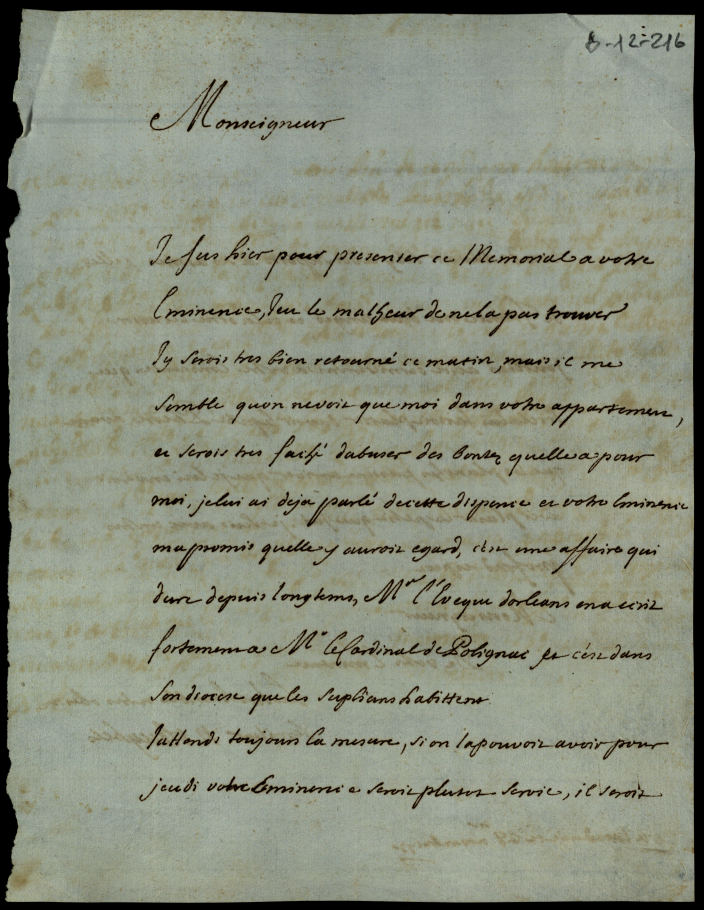 B-12-216
Monseigneur
Je fus hier pour presenter ce Memorial a votre
Eminence, Jeu le malheur de ne la pas trouver
Jy serois tres bien retourné ce matin, mais il me
semble quon ne voit que moi dans votre appartement,
et serois tres faché dabuser des bontez quelle a pour
moi, je lui ai deja parlé de cette dispence et votre Eminence
ma promis quelle y auroit egard, cest une affaire qui
dure depuis longtems, Mgr lEveque dorleans en a ecrit
fortement a Mr le Cardinal de Polignac et cest dans
son diocese que les suplians habittent
Jattends toujours la mesure, si on la pouvoit avoir pour
jeudi votre Eminence seroit plutot servie, il seroit